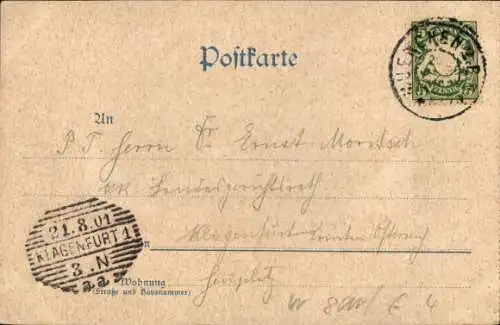 Postkarte
MUENCHEN 2 B.P.
PFENNIG
An
P. T. Herrn Dr Ernst Moritsch
kk. Landesgerichtsrath
Klagenfurt Kärnten Österreich
in
21.8.01
KLAGENFURT 1
3.N
a a
Wohnung
(Straße und Hausnummer)
W € 4